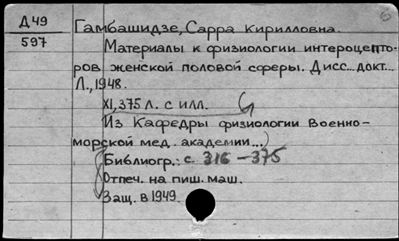 Д 49
597
Гамбашидзе, Сарра Кирилловна.
Материалы к физиологии интероцепто-
ров женской половой сферы. Дисс... докт...
Л., 1948.
XI, 375 л. с илл.
(Из Кафедры физиологии Военно-
морской мед. академии...)
Библиогр.: с. 316 – 375
Отпеч. на пиш. маш.
Защ. в 1949.